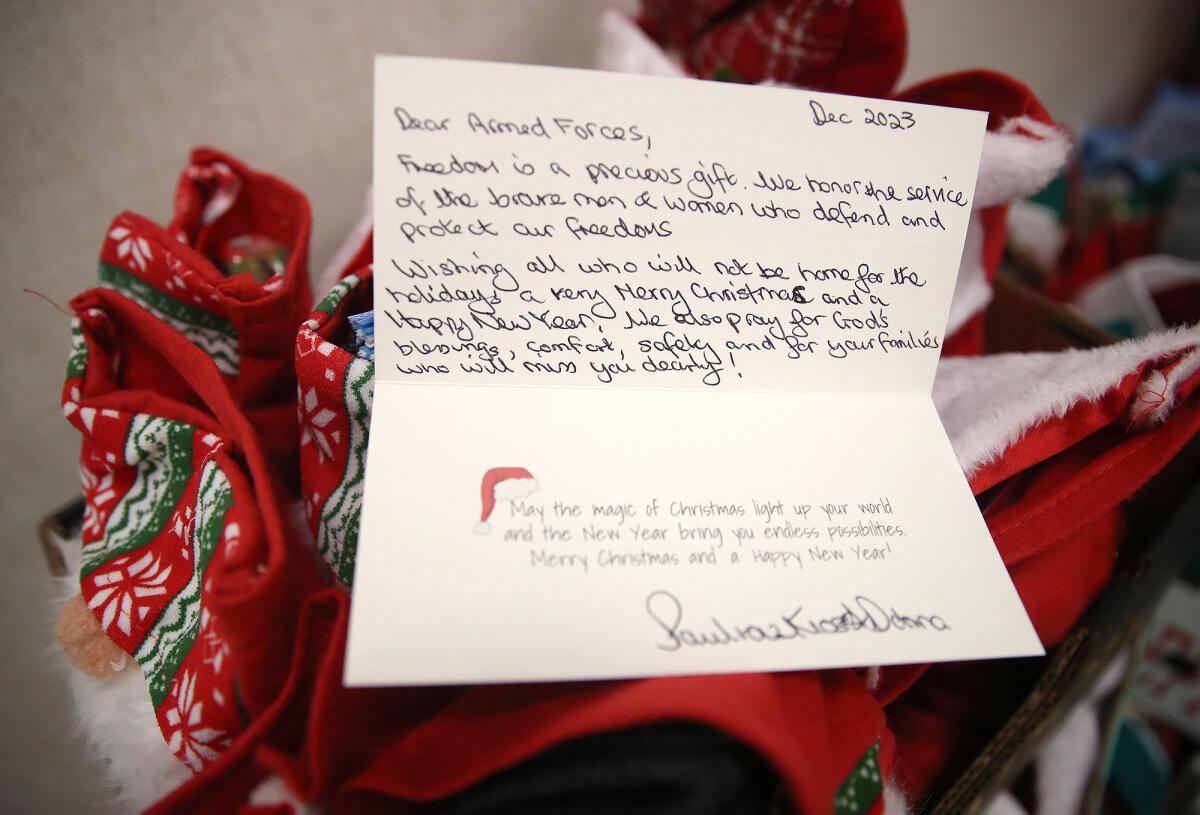 Dec 2023
Dear Armed Forces,
Freedom is a precious gift. We honor the service
of the brave men & women who defend and
protect our freedoms
Wishing all who will not be home for the
holidays a very Merry Christmas and a
Happy New Year. We also pray for God's
blessings, comfort, safety and for your families
who will miss you dearly!
May the magic of Christmas light up your world
and the New Year bring you endless possibilities.
Merry Christmas and a Happy New Year!
Donna